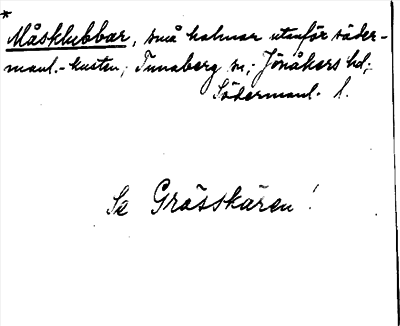 *
Måsklubbar, små holmar utanför söder-
manl.-kusten; Tunaberg sn; Jönåkers hd;
Södermanl. l.
Se Grässkären!